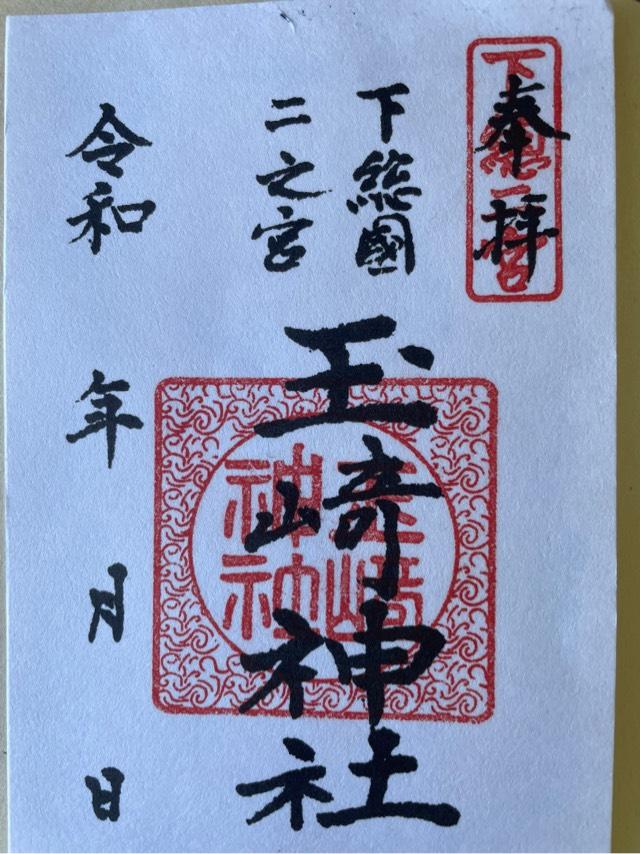 奉拝
下総二宮
下総國
二之宮
玉崎神社
玉崎神社
令和 年 月 日